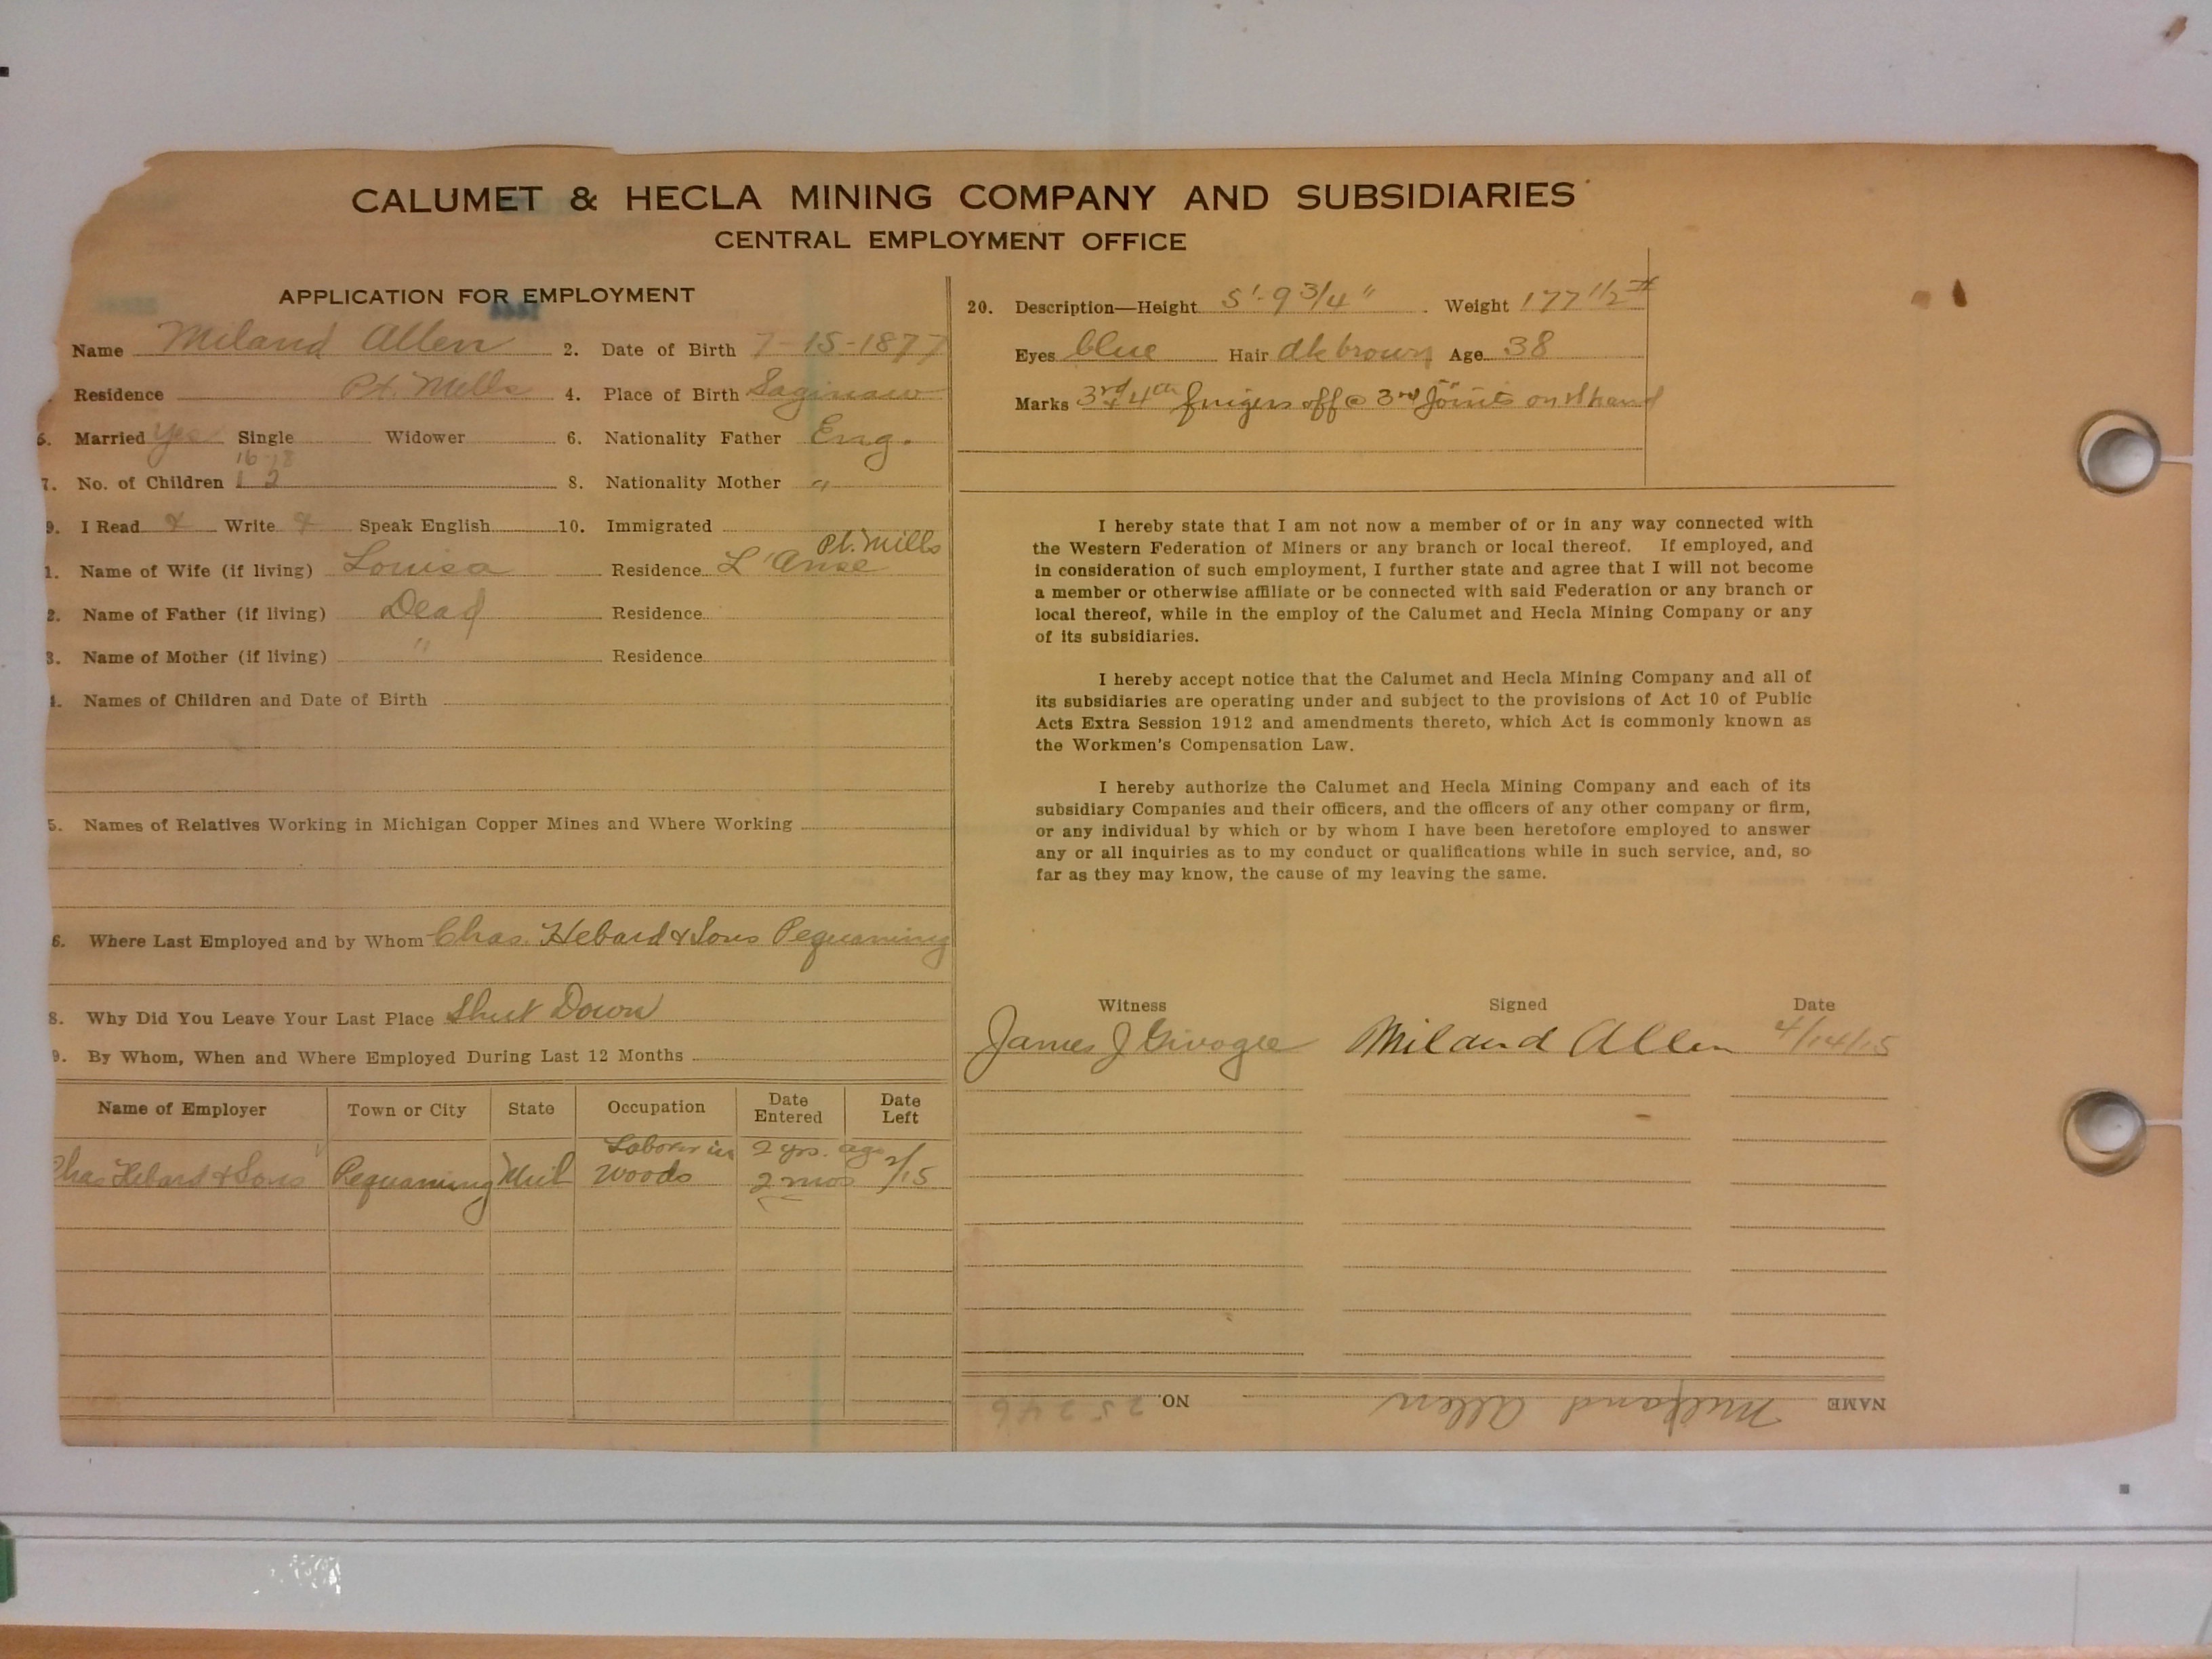 CALUMET & HECLA MINING COMPANY AND SUBSIDIARIES
CENTRAL EMPLOYMENT OFFICE
APPLICATION FOR EMPLOYMENT
Name Miland Allen 2. Date of Birth 7-15-1877
Residence Pt. Mills 4. Place of Birth Saginaw
5. Married Yes Single Widower 6. Nationality Father Eng.
16-18
7. No. of Children 1 2 8. Nationality Mother "
9. I Read Write Speak English 10. Immigrated
Pt. Mills
1. Name of Wife (if living) Louisa Residence L'Anse
2. Name of Father (if living) Dead Residence
3. Name of Mother (if living) " Residence
4. Names of Children and Date of Birth
5. Names of Relatives Working in Michigan Copper Mines and Where Working
6. Where Last Employed and by Whom Chas. Hebard & Sons Pequaming
8. Why Did You Leave Your Last Place Shut Down
9. By Whom, When and Where Employed During Last 12 Months
Name of Employer Town or City State Occupation Date Entered Date Left
Chas Hebard & Sons Pequaming Mich Laborer in Woods 2 yrs. ago 2 mos 2/15
20. Description—Height 5'-9 3/4" Weight 177 1/2 #
Eyes blue Hair dk brown Age 38
Marks 3rd & 4th fingers off @ 3rd joints on hand
I hereby state that I am not now a member of or in any way connected with
the Western Federation of Miners or any branch or local thereof. If employed, and
in consideration of such employment, I further state and agree that I will not become
a member or otherwise affiliate or be connected with said Federation or any branch or
local thereof, while in the employ of the Calumet and Hecla Mining Company or any
of its subsidiaries.
I hereby accept notice that the Calumet and Hecla Mining Company and all of
its subsidiaries are operating under and subject to the provisions of Act 10 of Public
Acts Extra Session 1912 and amendments thereto, which Act is commonly known as
the Workmen's Compensation Law.
I hereby authorize the Calumet and Hecla Mining Company and each of its
subsidiary Companies and their officers, and the officers of any other company or firm,
or any individual by which or by whom I have been heretofore employed to answer
any or all inquiries as to my conduct or qualifications while in such service, and, so
far as they may know, the cause of my leaving the same.
Witness Signed Date
James J Miland Allen 4/14/15
NAME Allen NO. 25246